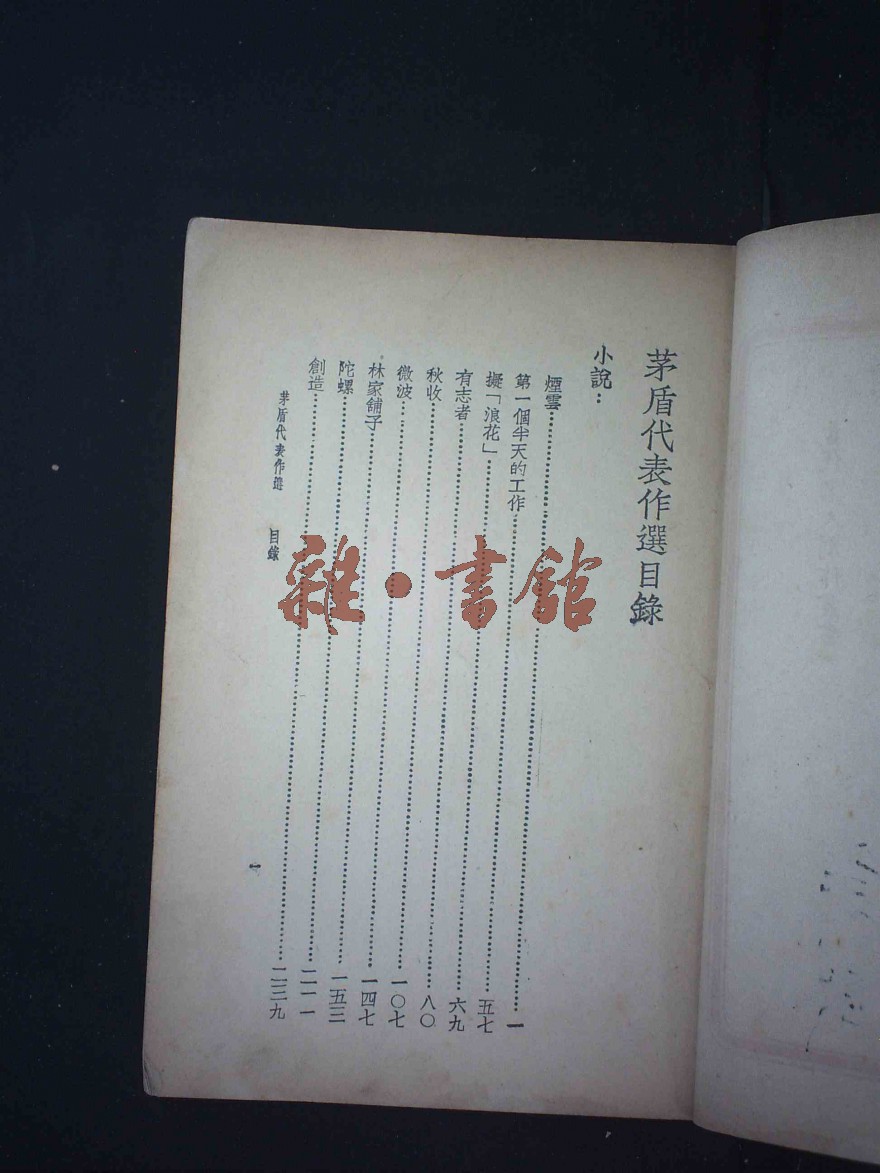 茅盾代表作選目錄
小說：
煙雲……一
第一個半天的工作……五七
擬「浪花」……六九
有志者……八〇
秋收……一〇七
微波……一四七
林家舖子……一五三
陀螺……二一一
創造……二三九
茅盾代表作選 目錄
一
雜·書館